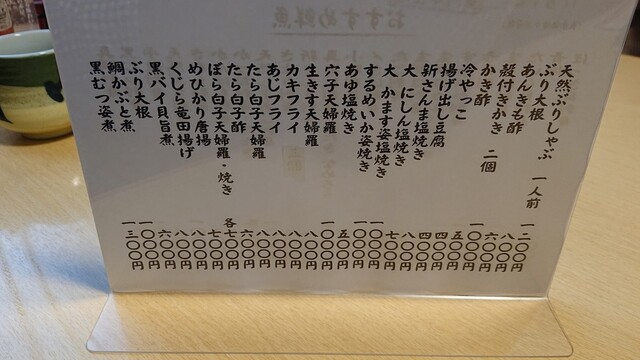 おすすめ鮮魚
天然ぶりしゃぶ 一人前 一二〇〇円
ぶり大根 八〇〇円
あんきも酢 六〇〇円
殻付きかき 二個 一〇〇〇円
かき酢 五〇〇円
冷やっこ 四〇〇円
揚げ出し豆腐 四〇〇円
新さんま塩焼き 八〇〇円
大 にしん塩焼き 七〇〇円
大 かます姿塩焼き 一〇〇〇円
するめいか姿焼き 一〇〇〇円
あゆ塩焼き 五〇〇円
穴子天婦羅 一〇〇〇円
生きす天婦羅 八〇〇円
カキフライ 八〇〇円
あじフライ 八〇〇円
たら白子天婦羅 八〇〇円
たら白子酢 六〇〇円
ぼら白子天婦羅・焼き 各七〇〇円
めひかり唐揚 七〇〇円
くじら竜田揚げ 八〇〇円
黒バイ貝旨煮 八〇〇円
ぶり大根 六〇〇円
鯛かぶと煮 一〇〇〇円
黒むつ姿煮 一三〇〇円